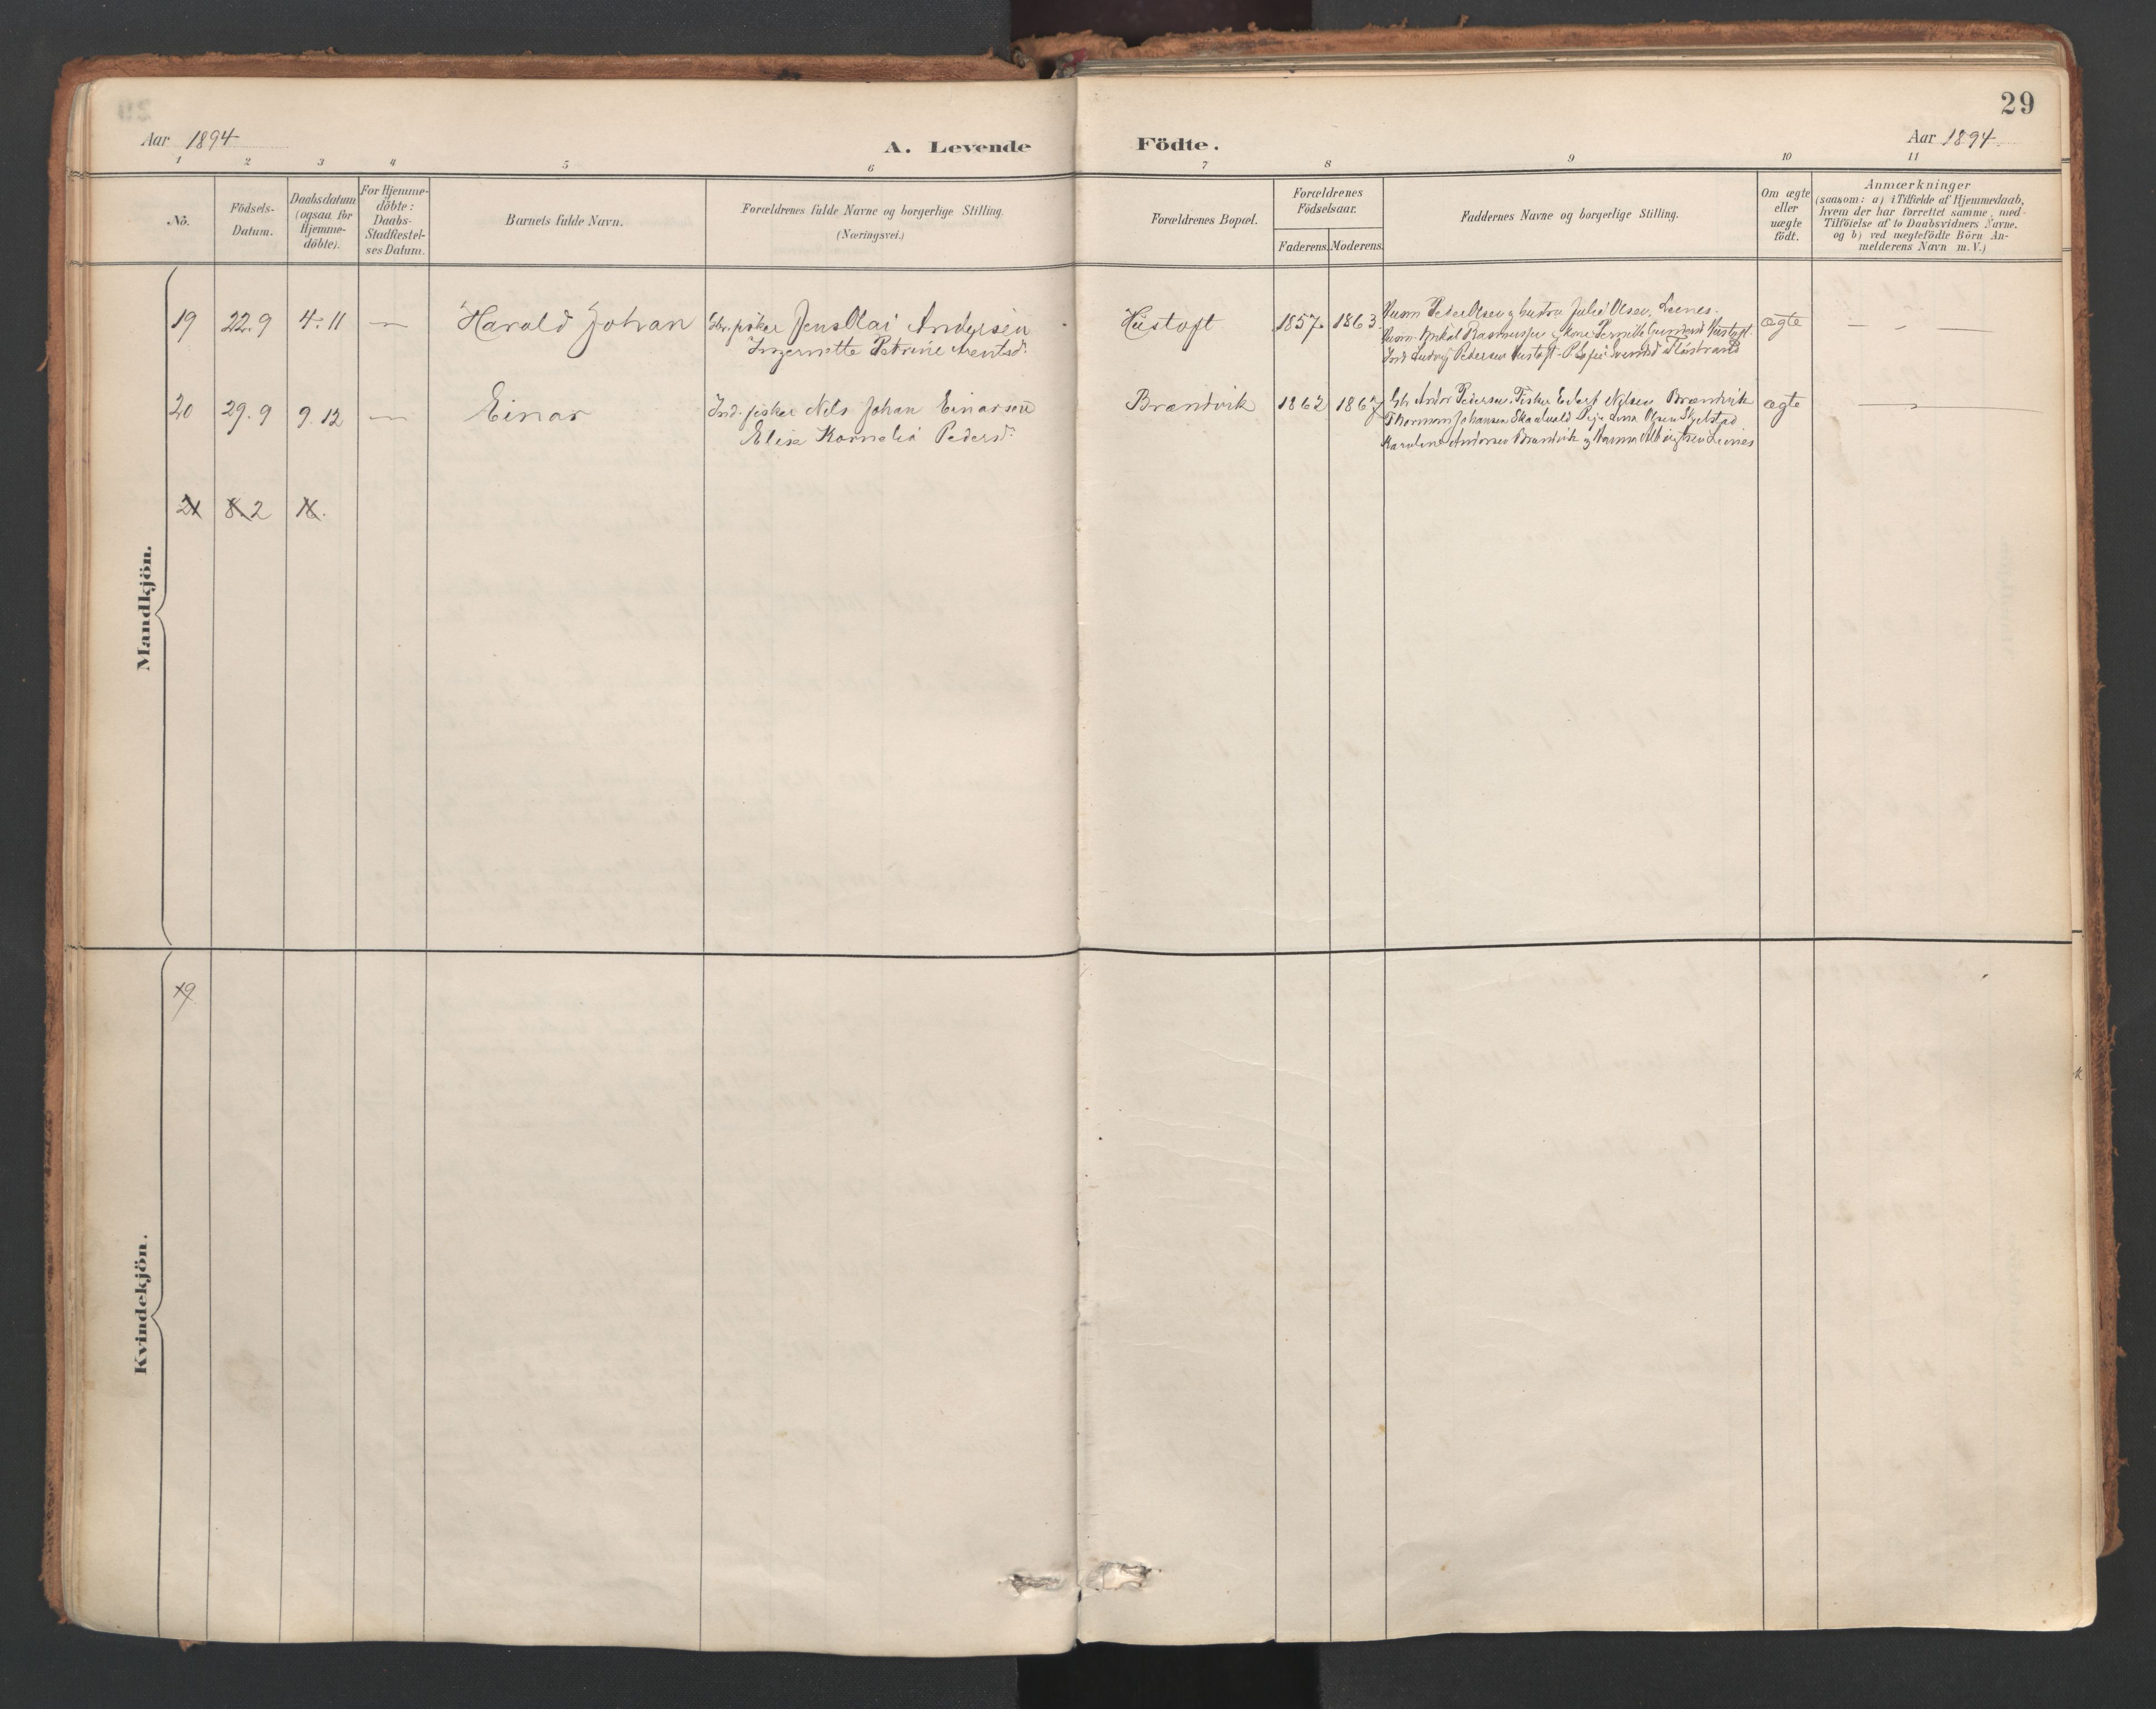 29
Aar 1894
A. Levende Födte.
Aar 1894.
1 2 3 4 5 6 7 8 9 10 11
No.
Födsels-
Datum.
Daabsdatum
(ogsaa for
Hjemme-
döbte).
For Hjemme-
döbte:
Daabs-
Stadfæstel-
ses Datum.
Barnets fulde Navn.
Forældrenes fulde Navne og borgerlige Stilling.
(Næringsvei.)
Forældrenes Bopæl.
Forældrenes
Födselsaar.
Faderens. Moderens.
Faddernes Navne og borgerlige Stilling.
Om ægte
eller
uægte
födt.
Anmærkninger
(saasom: a) i Tilfælde af Hjemmedaab,
hvem der har forrettet samme, med
Tilföielse af to Daabsvidners Navne.
og b) ved uægtefödte Börn An-
melderens Navn m.V.)
Mandkjön.
19 22.9 4.11 — Harald Johan
fisker Jens Olai Andersen
Ingernette Petrine Arentsd.
Hustoft 1857. 1863.
Husm Peder Olsen og hustru Julie Olsen, Leenes.
Husm. Mikal Rasmussen Kone Pernille Hustoft.
Ind Ludvig Pedersen Hustoft
ægte — — —
20 29.9 9.12 — Einar
Ind. fisker Nels Johan Einarsen
Elise Kornelia Pedersd.
Brandvik 1862 1867
Gb Andor Pedersen. Fisker Edorf Nilsen Brandvik
Johansen Pige Anna Olsen
Karoline Andersen Brandvik og Hanna
ægte —
21 8.2 16.
Kvindekjön.
19